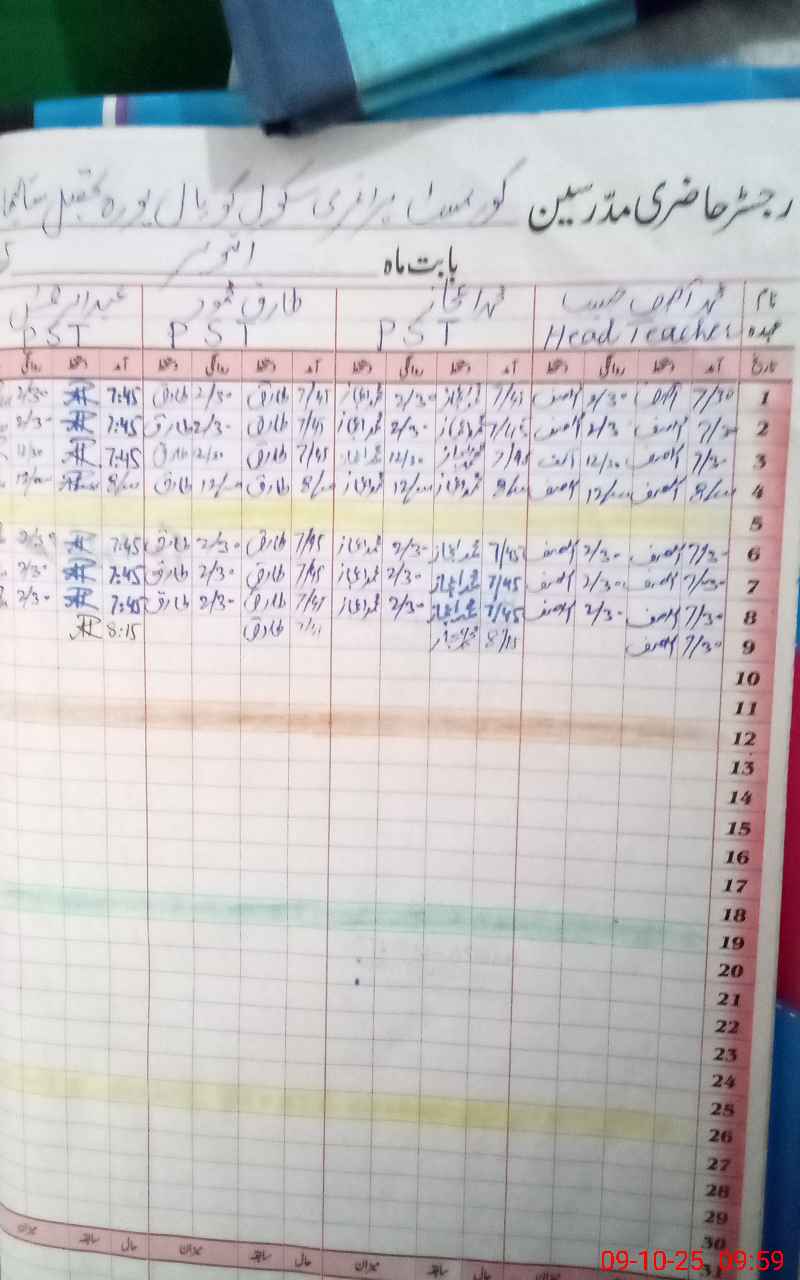 رجسٹر حاضری مدرسین گورنمنٹ پرائمری سکول گوپال پورہ تحصیل
بابت ماہ اکتوبر
نام محمد آصف حبیب محمد اعجاز طارق محمود
عہدہ Head Teacher PST PST PST
تاریخ آمد دستخط روانگی دستخط آمد دستخط روانگی دستخط آمد دستخط روانگی دستخط آمد دستخط روانگی
1 7/30 آصف 2/30 آصف 7/45 محمد اعجاز 2/30 محمد اعجاز 7/45 طارق 2/30 طارق 7:45 2/30
2 آصف 2/3 آصف 7/45 محمد اعجاز 2/30 محمد اعجاز 7/45 طارق 2/30 طارق 7:45 2/30
3 7/30 آصف 12/30 آصف 7/45 محمد اعجاز 12/30 محمد اعجاز 7/45 طارق طارق 7:45 12/30
4 8/00 آصف 12/00 آصف 8/00 محمد اعجاز 12/00 محمد اعجاز 8/00 طارق 12/00 طارق 8/00 12/00
5
6 7/30 آصف 2/30 آصف 7/45 محمد اعجاز 2/30 محمد اعجاز 7/45 طارق 2/30 طارق 7:45 2/30
7 7/30 آصف 2/30 آصف 7/45 محمد اعجاز 2/30 محمد اعجاز 7/45 طارق 2/30 طارق 7:45 2/30
8 7/30 آصف 2/30 آصف 7/45 محمد اعجاز 2/30 محمد اعجاز 7/45 طارق 2/30 طارق 7:45 2/30
9 7/30 آصف 8/15 محمد اعجاز طارق 8:15
10
11
12
13
14
15
16
17
18
19
20
21
22
23
24
25
26
27
28
29
30
31
حال سابقہ میزان حال سابقہ میزان حال سابقہ میزان
09-10-25 09:59